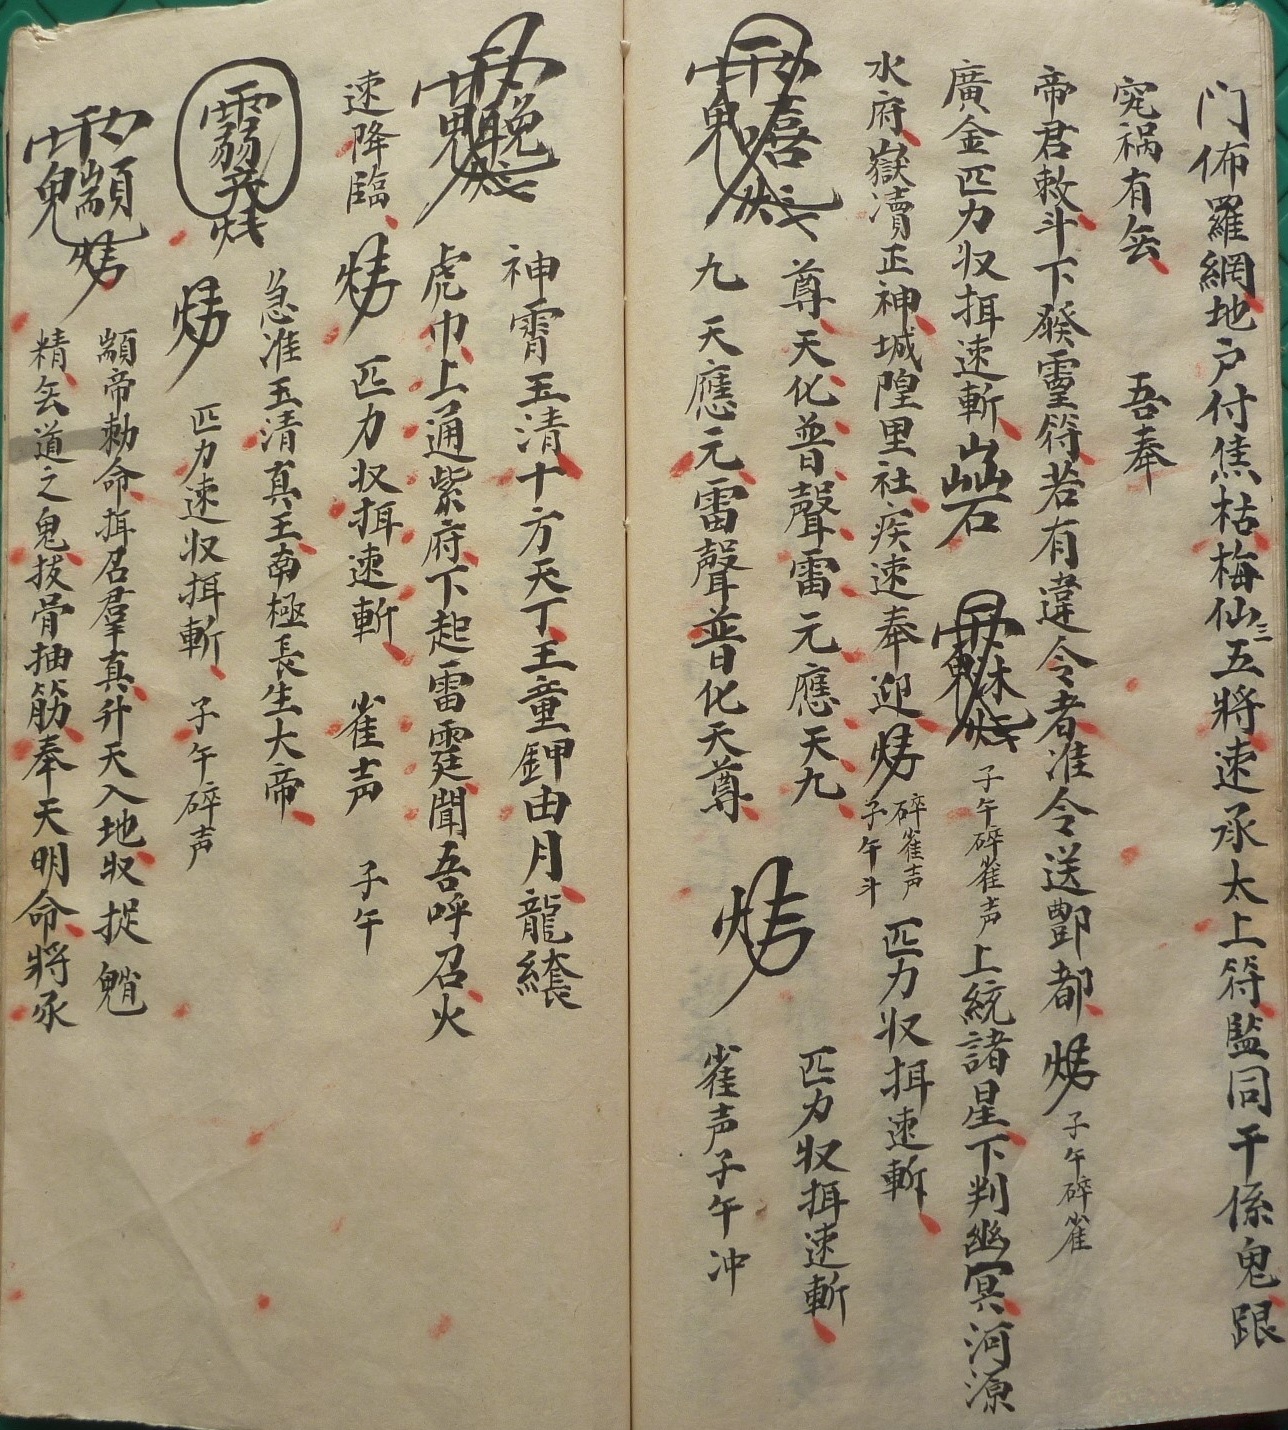 门佈羅網地户付焦枯梅仙三五將速承太上符監同干係鬼跟
究祸有厺 吾奉
帝君敕斗下發靈符若有違令者准令送酆都 子午碎雀
廣金匹力収挕速斬 子午碎雀声上統諸星下判幽冥河源
水府嶽瀆正神城隍里社疾速奉迎 碎雀声子午斗 匹力収挕速斬
尊天化普聲雷元應天九 匹力収挕速斬
九天應元雷聲普化天尊 雀声子午冲
神霄玉清十方天丁王童鉀由月龍
虎巾上通紫府下起雷霆聞吾呼召火
速降臨 匹力収挕速斬 雀声 子午
急准玉清真王南極長生大帝
匹力速収挕斬 子午碎声
顓帝勅命挕召羣真升天入地収捉魈
精厺道之鬼拔骨抽筋奉天明命將承